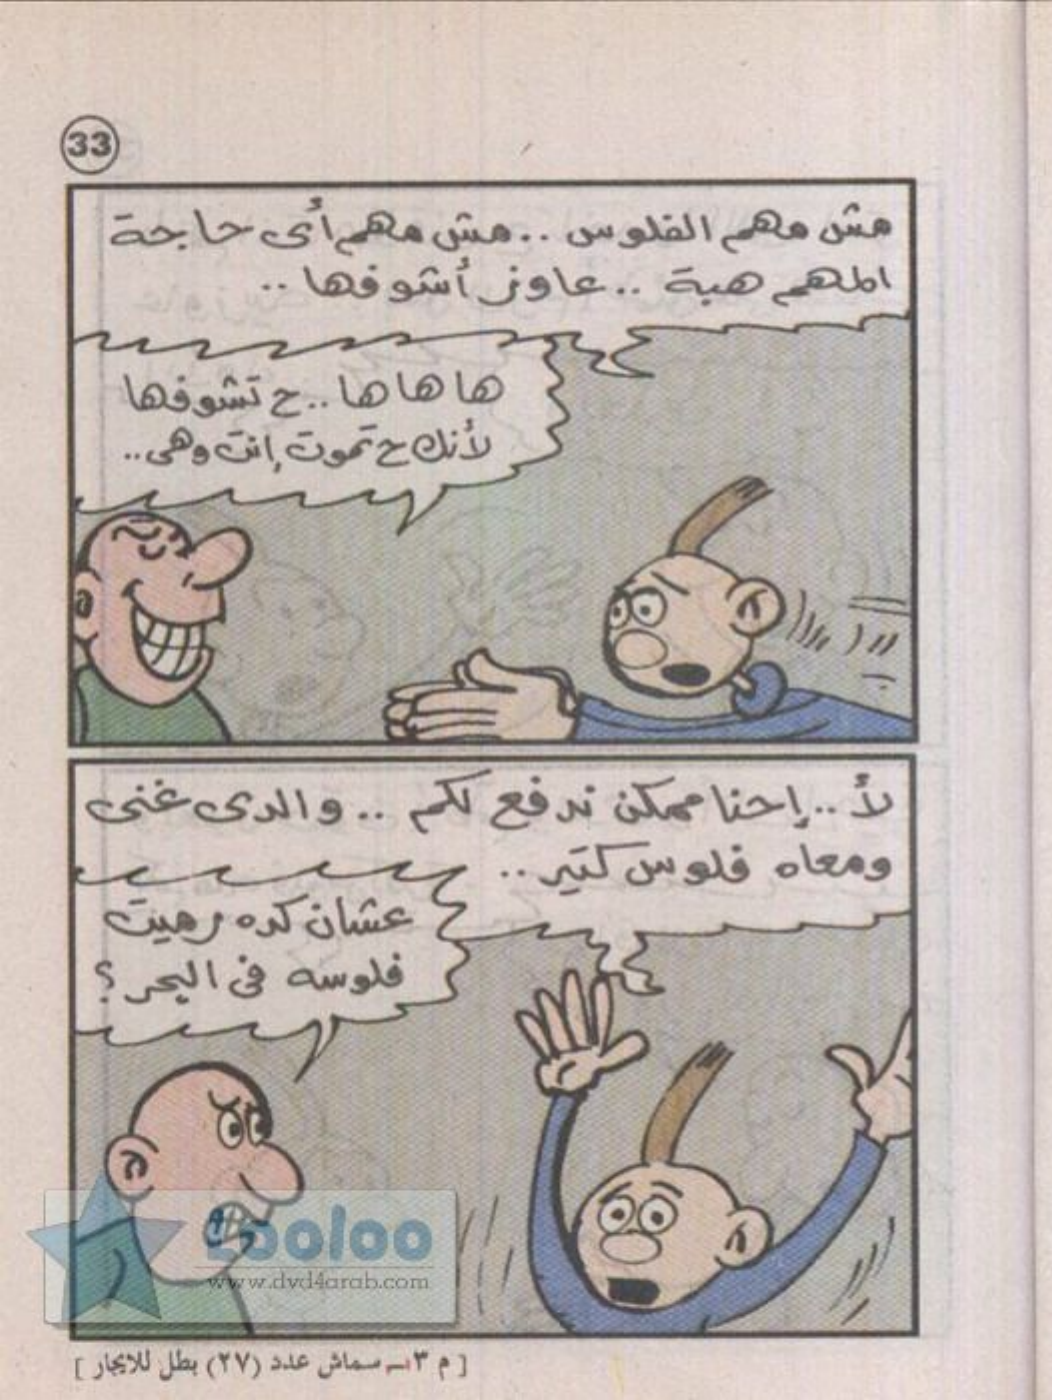 33
مش مهم الفلوس .. مش مهم أى حاجة
المهم هبة .. عاوز أشوفها ..
ها ها ها .. ح تشوفها
لأنك ح تموت إنت وهى ..
لأ .. إحنا ممكن ندفع لكم .. والدى غنى
ومعاه فلوس كتير ..
عشان كده رميت
فلوسه فى البحر ؟
looloo
www.dvd4arab.com
[ م ٣ ــ سماش عدد (٢٧) بطل للايجار ]